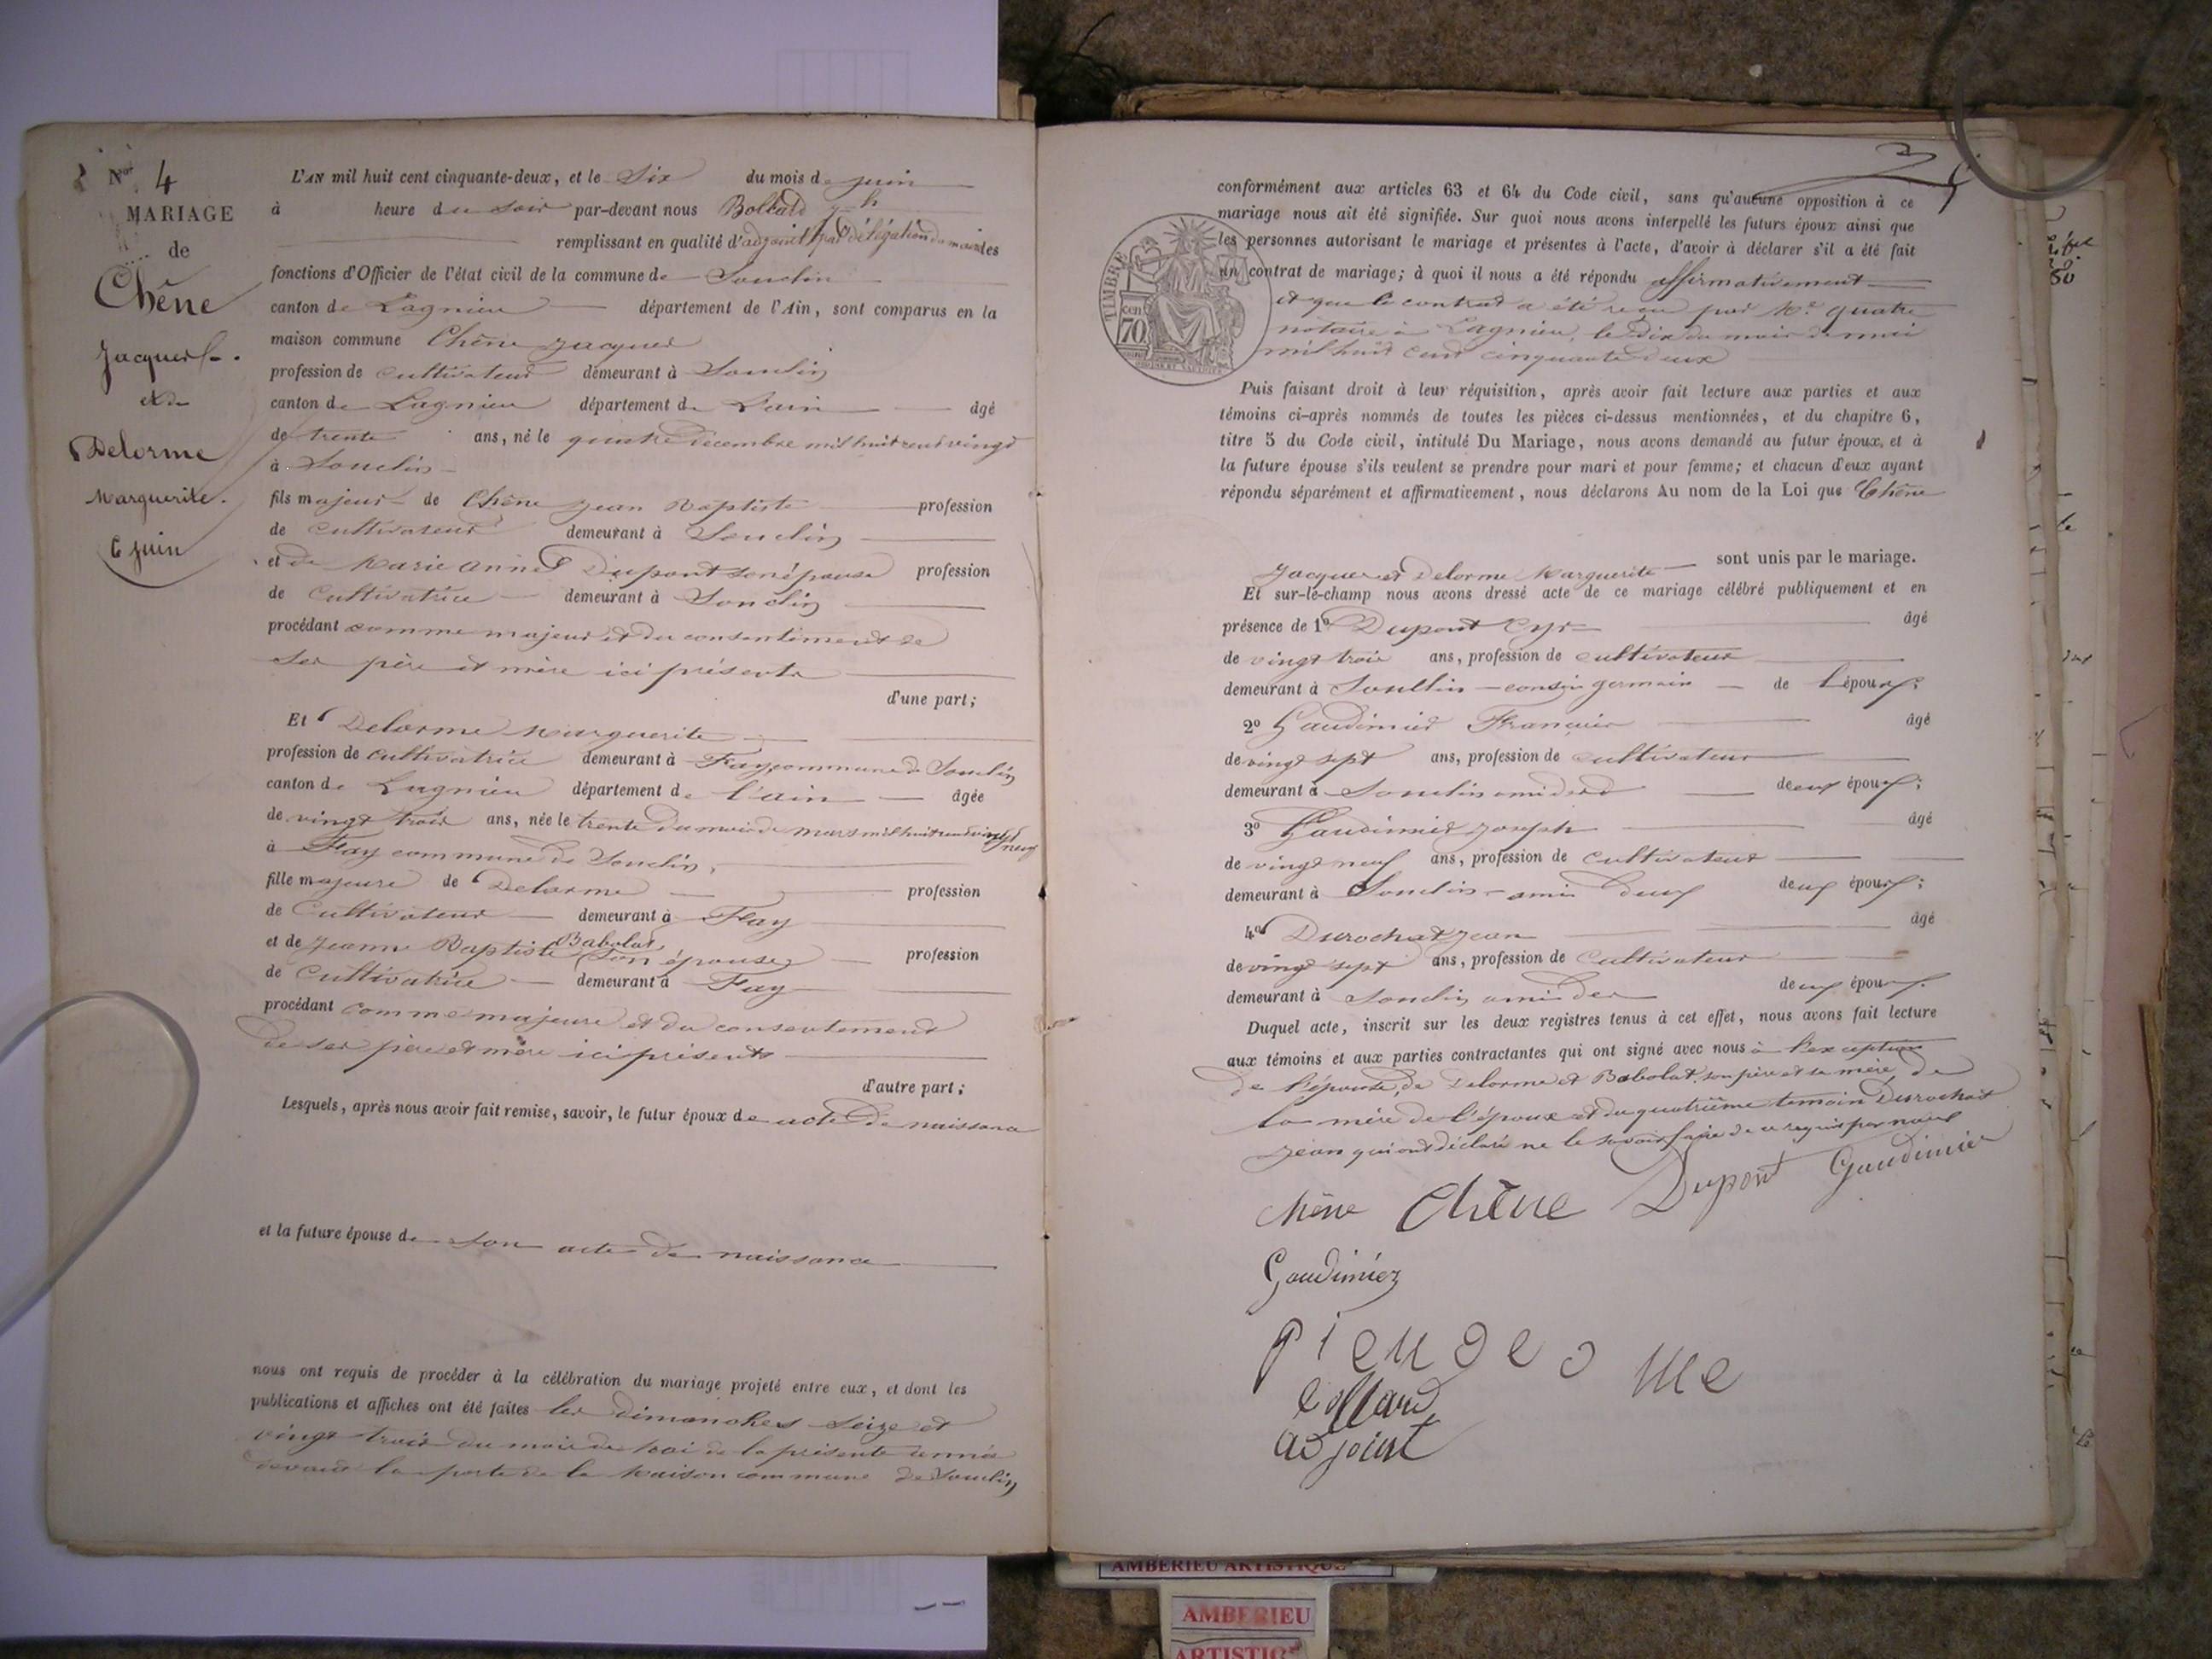 Nº 4
MARIAGE
de
Chêne
Jacques
et de
Delorme
Marguerite.
6 juin
L'AN mil huit cent cinquante-deux, et le Six du mois de juin
à heure du soir par-devant nous
remplissant en qualité d'adjoint par délégation du maire les
fonctions d'Officier de l'état civil de la commune de Souclin
canton de Lagnieu département de l'Ain, sont comparus en la
maison commune Chêne Jacques
profession de cultivateur demeurant à Souclin
canton de Lagnieu département de l'ain âgé
de trente ans, né le quatre décembre mil huit cent vingt
à Souclin
fils majeur de Chêne Jean Baptiste profession
de cultivateur demeurant à Souclin
et de Marie Anne Dupont son épouse profession
de Cultivatrice demeurant à Souclin
procédant comme majeur et du consentement de
ses père et mère ici présents
d'une part;
Et Delorme Marguerite
profession de cultivatrice demeurant à Fay commune de Souclin
canton de Lagnieu département de l'ain âgée
de vingt trois ans, née le trente du mois de mars mil huit cent vingt neuf
à Fay commune de Souclin,
fille majeure de Delorme profession
de Cultivateur demeurant à Fay
et de Jeanne Baptiste Babolat son épouse profession
de Cultivatrice demeurant à Fay
procédant comme majeure et du consentement
de ses père et mère ici présents
d'autre part;
Lesquels, après nous avoir fait remise, savoir, le futur époux de acte de naissance
et la future épouse de son acte de naissance
nous ont requis de procéder à la célébration du mariage projeté entre eux, et dont les
publications et affiches ont été faites les dimanches seize et
vingt trois du mois de Mai de la présente année
devant la porte de la Maison commune de Souclin
conformément aux articles 63 et 64 du Code civil, sans qu'aucune opposition à ce
mariage nous ait été signifiée. Sur quoi nous avons interpellé les futurs époux ainsi que
les personnes autorisant le mariage et présentes à l'acte, d'avoir à déclarer s'il a été fait
un contrat de mariage; à quoi il nous a été répondu affirmativement
et que le contrat a été reçu par Me quatre
notaire à Lagnieu, le Dix du mois de mai
mil huit cent cinquante deux
TIMBRE
70
cen
Puis faisant droit à leur réquisition, après avoir fait lecture aux parties et aux
témoins ci-après nommés de toutes les pièces ci-dessus mentionnées, et du chapitre 6,
titre 5 du Code civil, intitulé Du Mariage, nous avons demandé au futur époux, et à
la future épouse s'ils veulent se prendre pour mari et pour femme; et chacun d'eux ayant
répondu séparément et affirmativement, nous déclarons Au nom de la Loi que Chêne
Jacques et Delorme Marguerite sont unis par le mariage.
Et sur-le-champ nous avons dressé acte de ce mariage célébré publiquement et en
présence de 1º Dupont Cyr âgé
de vingt trois ans, profession de cultivateur
demeurant à Souclin cousin germain de l'époux;
2º Gaudimier François âgé
de vingt sept ans, profession de cultivateur
demeurant à Souclin ami des deux époux;
3º Gaudimier Joseph âgé
de vingt neuf ans, profession de Cultivateur
demeurant à Souclin ami deux deux époux;
4º Durochat Jean âgé
de vingt sept ans, profession de Cultivateur
demeurant à Souclin ami des deux époux.
Duquel acte, inscrit sur les deux registres tenus à cet effet, nous avons fait lecture
aux témoins et aux parties contractantes qui ont signé avec nous à l'exception
de l'épouse, de Delorme et Babolat son père et sa mère, de
la mère de l'époux et du quatrième temoin Durochat
Jean qui ont déclaré ne le savoir faire de ce requis par nous
Chêne Chêne Dupont Gaudimier
Gaudimiez
adjoint
AMBERIEU ARTISTIQUE
AMBERIEU
ARTISTIQ